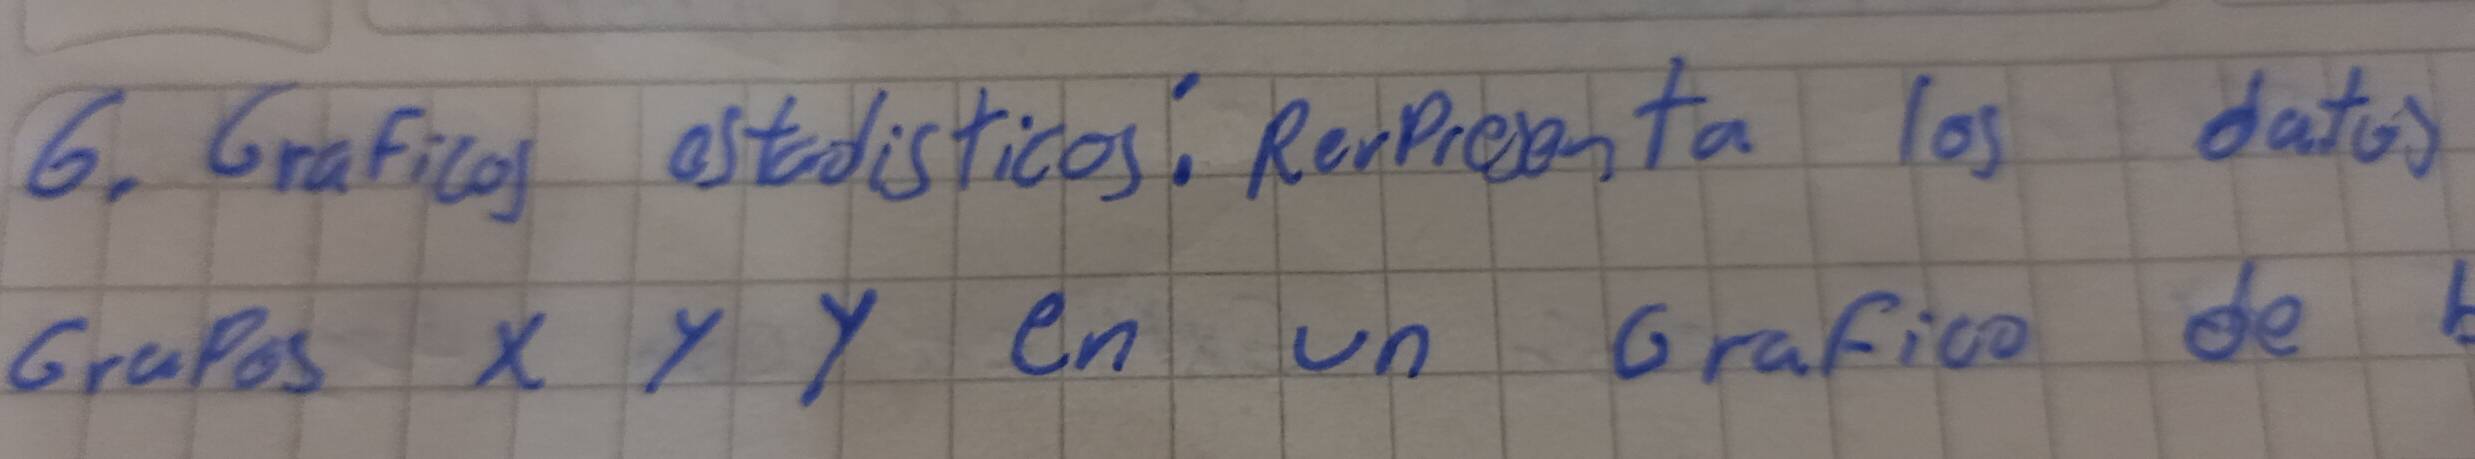 6. Graficos estadisticos: Rerpresenta los datos
Grupos x y y en un Grafico de b